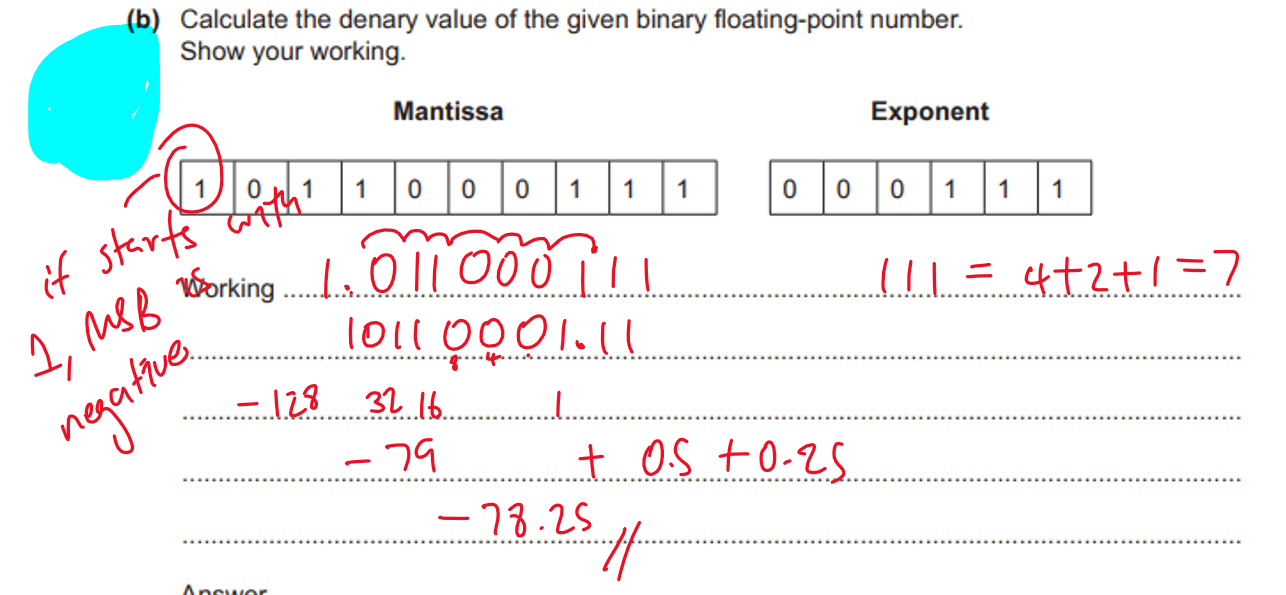 (b) Calculate the denary value of the given binary floating-point number.
Show your working.
Mantissa Exponent
1 0 1 1 0 0 0 1 1 1 0 0 0 1 1 1
if starts with
1, MSB is
negative
Working 1.011000111 111 = 4+2+1=7
10110001.11
8 4
-128 32 16 1
-79 + 0.5 +0.25
-78.25 //
Answer